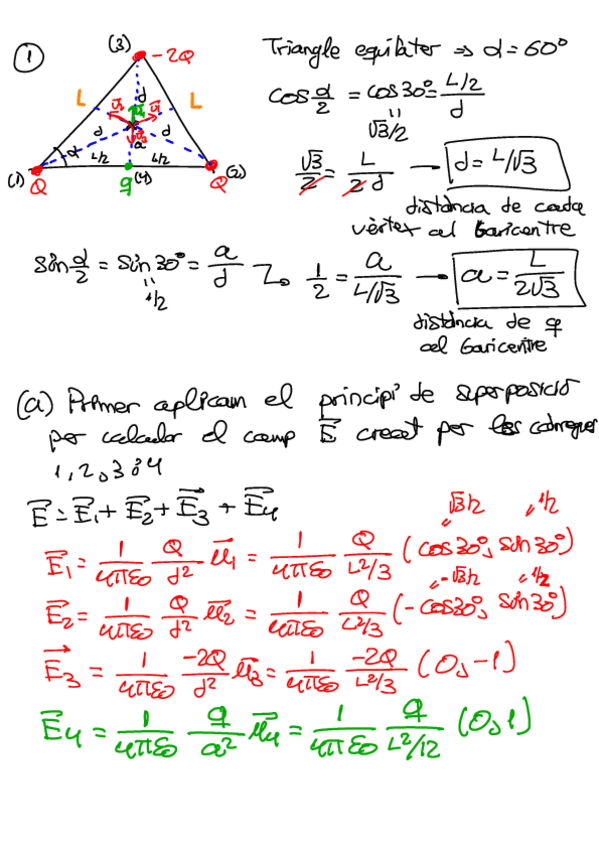 ①
(3) -2Q
L L
d
d d
a
α
L/2 L/2
(1) Q q (4) Q (2)
Triangle equilàter ⇒ α = 60º
cos α/2 = cos 30º = (L/2)/d
√3/2
√3/2 = L/2d → d = L/√3
distància de cada
vèrtex al baricentre
sin α/2 = sin 30º = a/d → 1/2 = a/(L/√3) → a = L/2√3
1/2
distància de q
al baricentre
(a) Primer aplicam el principi de superposició
per calcular el camp E⃗ creat per les càrregues
1, 2, 3 i 4
E⃗ = E⃗1 + E⃗2 + E⃗3 + E⃗4
√3/2 , 1/2
E⃗1 = 1/4πε0 Q/d² μ⃗1 = 1/4πε0 Q/(L²/3) (cos 30º, sin 30º)
-√3/2 1/2
E⃗2 = 1/4πε0 Q/d² μ⃗2 = 1/4πε0 Q/(L²/3) (-cos 30º, sin 30º)
E⃗3 = 1/4πε0 -2Q/d² μ⃗3 = 1/4πε0 -2Q/(L²/3) (0, -1)
E⃗4 = 1/4πε0 q/a² μ⃗4 = 1/4πε0 q/(L²/12) (0, 1)